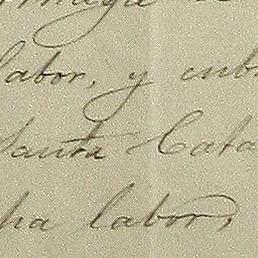 labor, y cub
Santa Cata
ha labor,